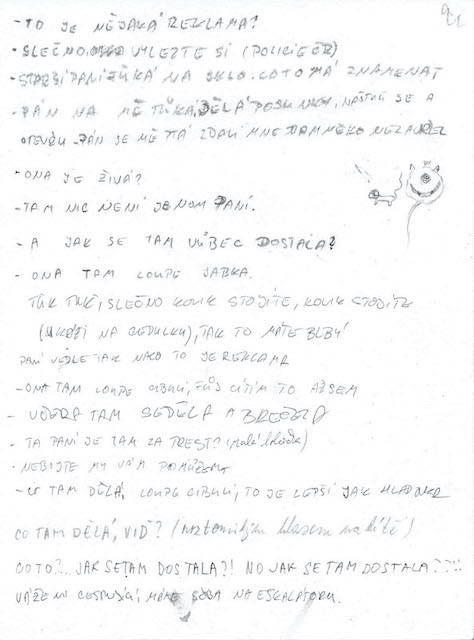 - TO JE NĚJAKÁ REKLAMA?
- SLEČNO, VYLEZTE SI (POLICIE ČR)
- STARŠÍ PANÍ ŤUKÁ NA SKLO. CO TO MÁ ZNAMENAT
- PÁN NA MĚ ŤUKÁ, DĚLÁ POSUNKY, NAŠTVE SE A
PÁN SE MĚ PTÁ ZDALI MNE TAM NĚKDO NEZAVŘEL
- ONA JE ŽIVÁ?
- TAM NIC NENÍ JENOM PANÍ.
- A JAK SE TAM VŮBEC DOSTALA?
- ONA TAM LOUPE JABKA.
ŤUK ŤUK, SLEČNO KOLIK STOJÍTE, KOLIK STOJÍTE
(UKÁŽI NA CEDULKU), TAK TO MÁTE BLBÝ
PANÍ VEDLE TAK NAKO TO JE REKLAMA
- ONA TAM LOUPE CIBULI, FUJ CÍTÍM TO AŽ SEM
- VČERA TAM SEDĚLA A BREČELA
- TA PANÍ JE TAM ZA TREST? (malá holčička)
- NEBOJTE MY VÁM POMŮŽEMY
- CO TAM DĚLÁ, LOUPE CIBULI, TO JE LEPŠÍ JAK HLADOVKA
CO TAM DĚLÁ, VIĎ? (roztomilým hlasem na dítě)
COTO?.. JAK SE TAM DOSTALA?! NO JAK SE TAM DOSTALA??!!
VÁŽENÍ CESTUJÍCÍ, MÁME SOBA NA ESKALÁTORU.